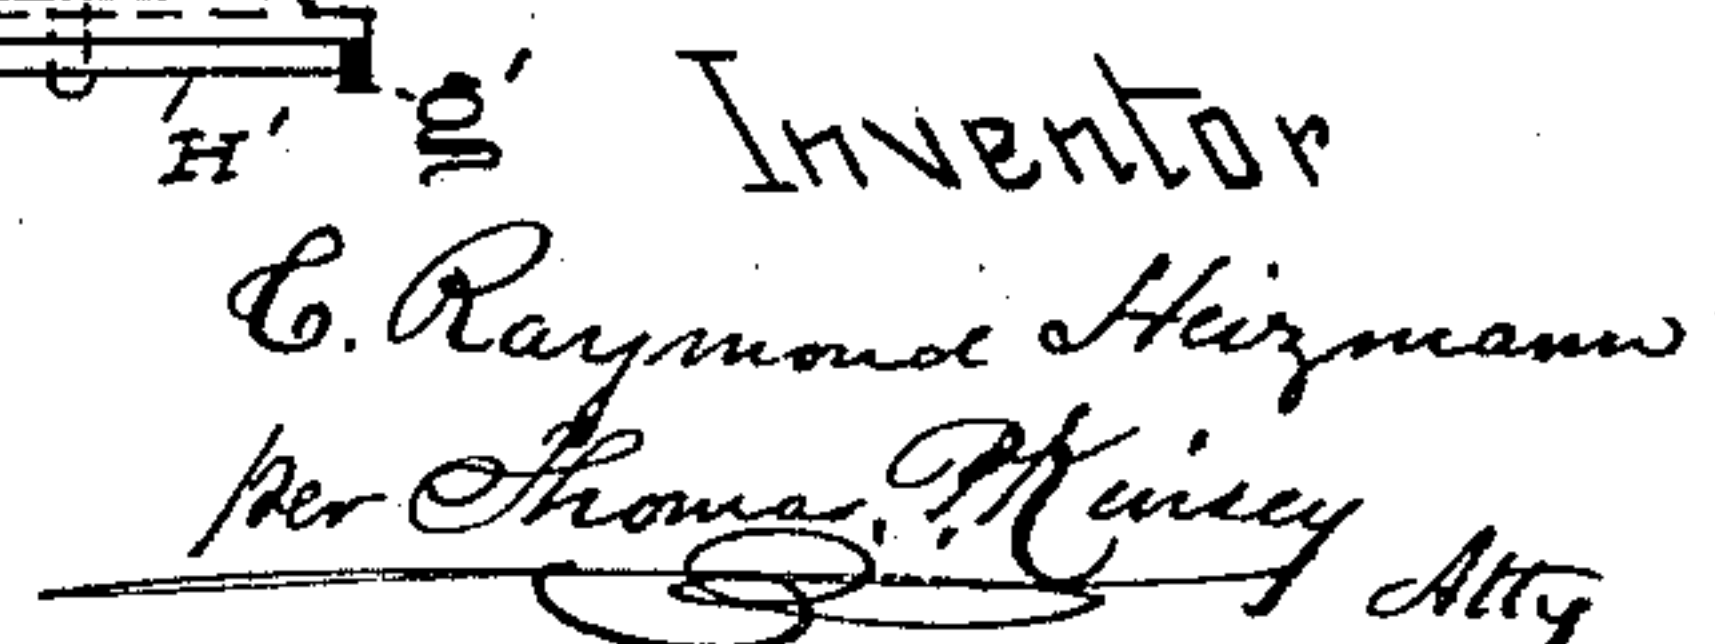 H' g' Inventor
C. Raymond Heizmann
per Thomas P. Kinsey
Atty